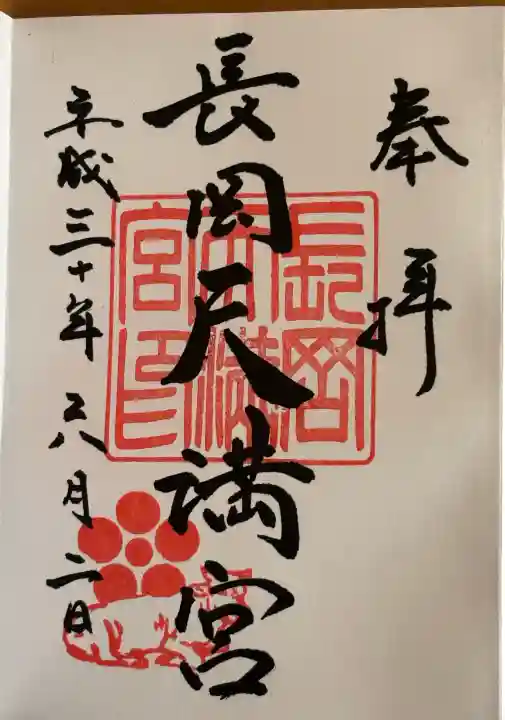 奉拝
長岡天満宮
平成三十年六月二日
長岡天満宮印